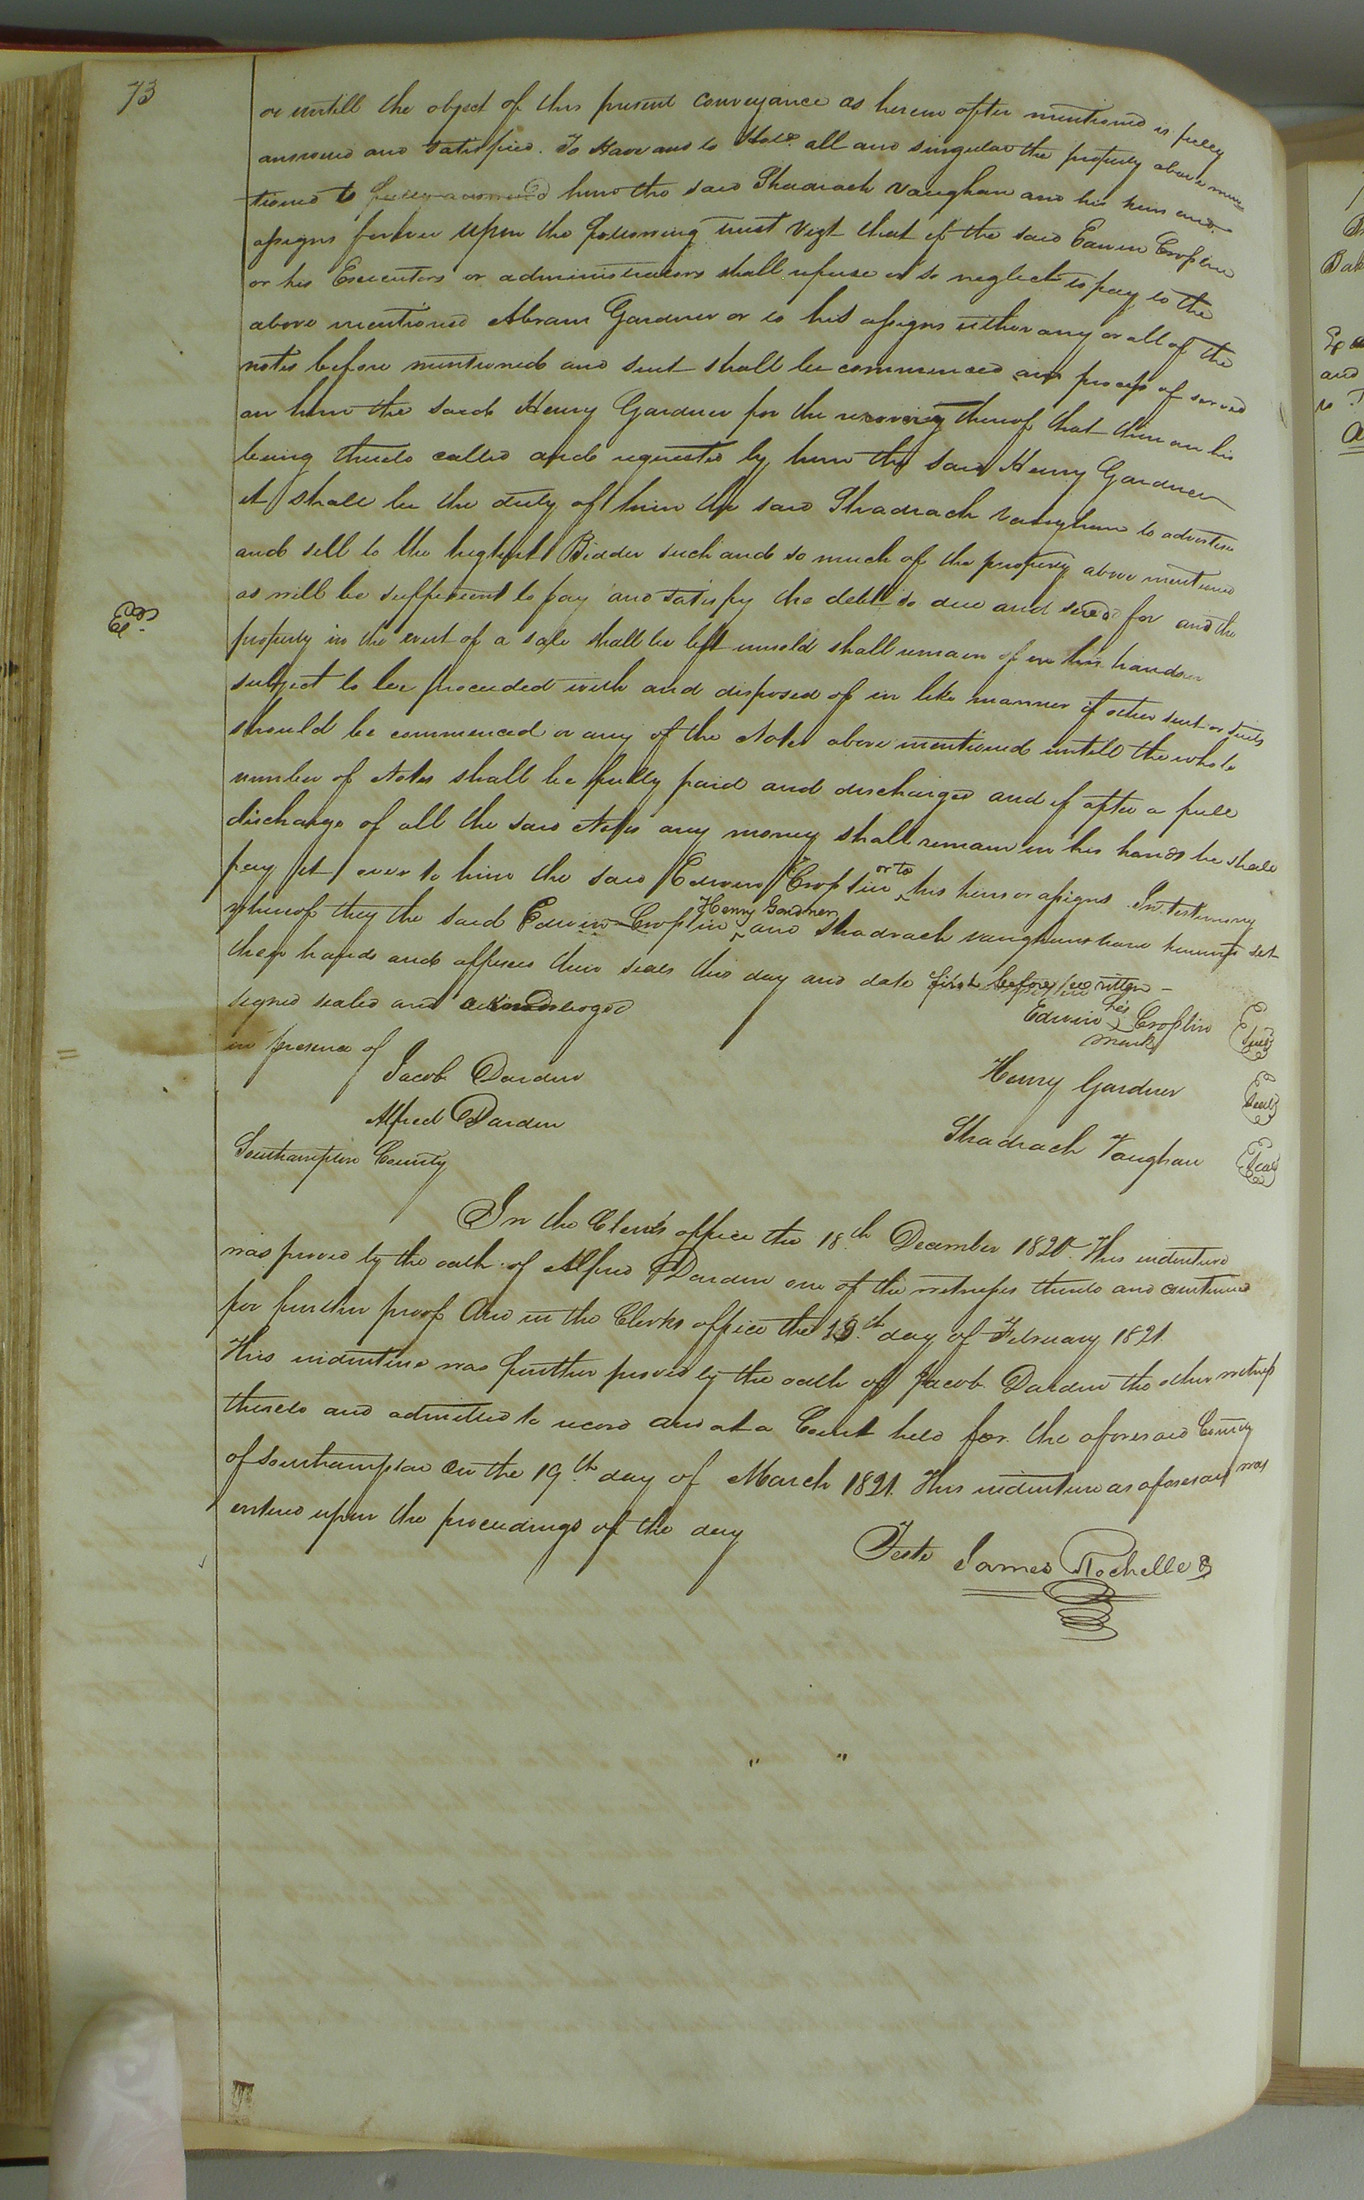 73
or untill the object of this present conveyance as herein after mentioned is fully
answered and satisfied. To Have and to Hold all and singular the property above men-
tioned to fully answered him the said Shadrach Vaughan and his heirs and
assigns forever upon the following trust Vizt that if the said Edwin Crosslin
or his Executors or administrators shall refuse or so neglect to pay to the
above mentioned Abram Gardner or to his assigns either any or all of the
notes before mentioned and suit shall be commenced and process of served
on him the said Henry Gardner for the recovery thereof that then on his
being thereto called and requested by him the said Henry Gardner
it shall be the duty of him the said Shadrach Vaughan to advertise
and sell to the highest Bidder such and so much of the property above mentioned
as will be sufficient to pay and satisfy the debt so due and sued for and the
property in the event of a sale shall be left unsold shall remain in his hands
subject to be proceeded with and disposed of in like manner if other suit or suits
should be commenced or any of the Notes above mentioned untill the whole
number of Notes shall be fully paid and discharged and if after a full
discharge of all the said Notes any money shall remain in his hands he shall
pay it over to him the said Edwin Crosslin or to his heirs or assigns In testimony
whereof they the said Edwin Crosslin Henry Gardner and Shadrach Vaughan have hereunto set
their hands and affixed their seals this day and date first before written
signed sealed and acknowledged
in presence of
Edwin his mark Crosslin Seal
Jacob Darden
Henry Gardner Seal
Alfred Darden
Shadrach Vaughan Seal
Southampton County
In the Clerk's office the 18th December 1820 This indenture
was proved by the oath of Alfred Darden one of the witnesses thereto and continued
for further proof And in the Clerks office the 19th day of February 1821.
This indenture was further proved by the oath of Jacob Darden the other witness
thereto and admitted to record and at a Court held for the aforesaid County
of Southampton on the 19th day of March 1821. This indenture as aforesaid was
entered upon the proceedings of the day
Teste James Rochelle